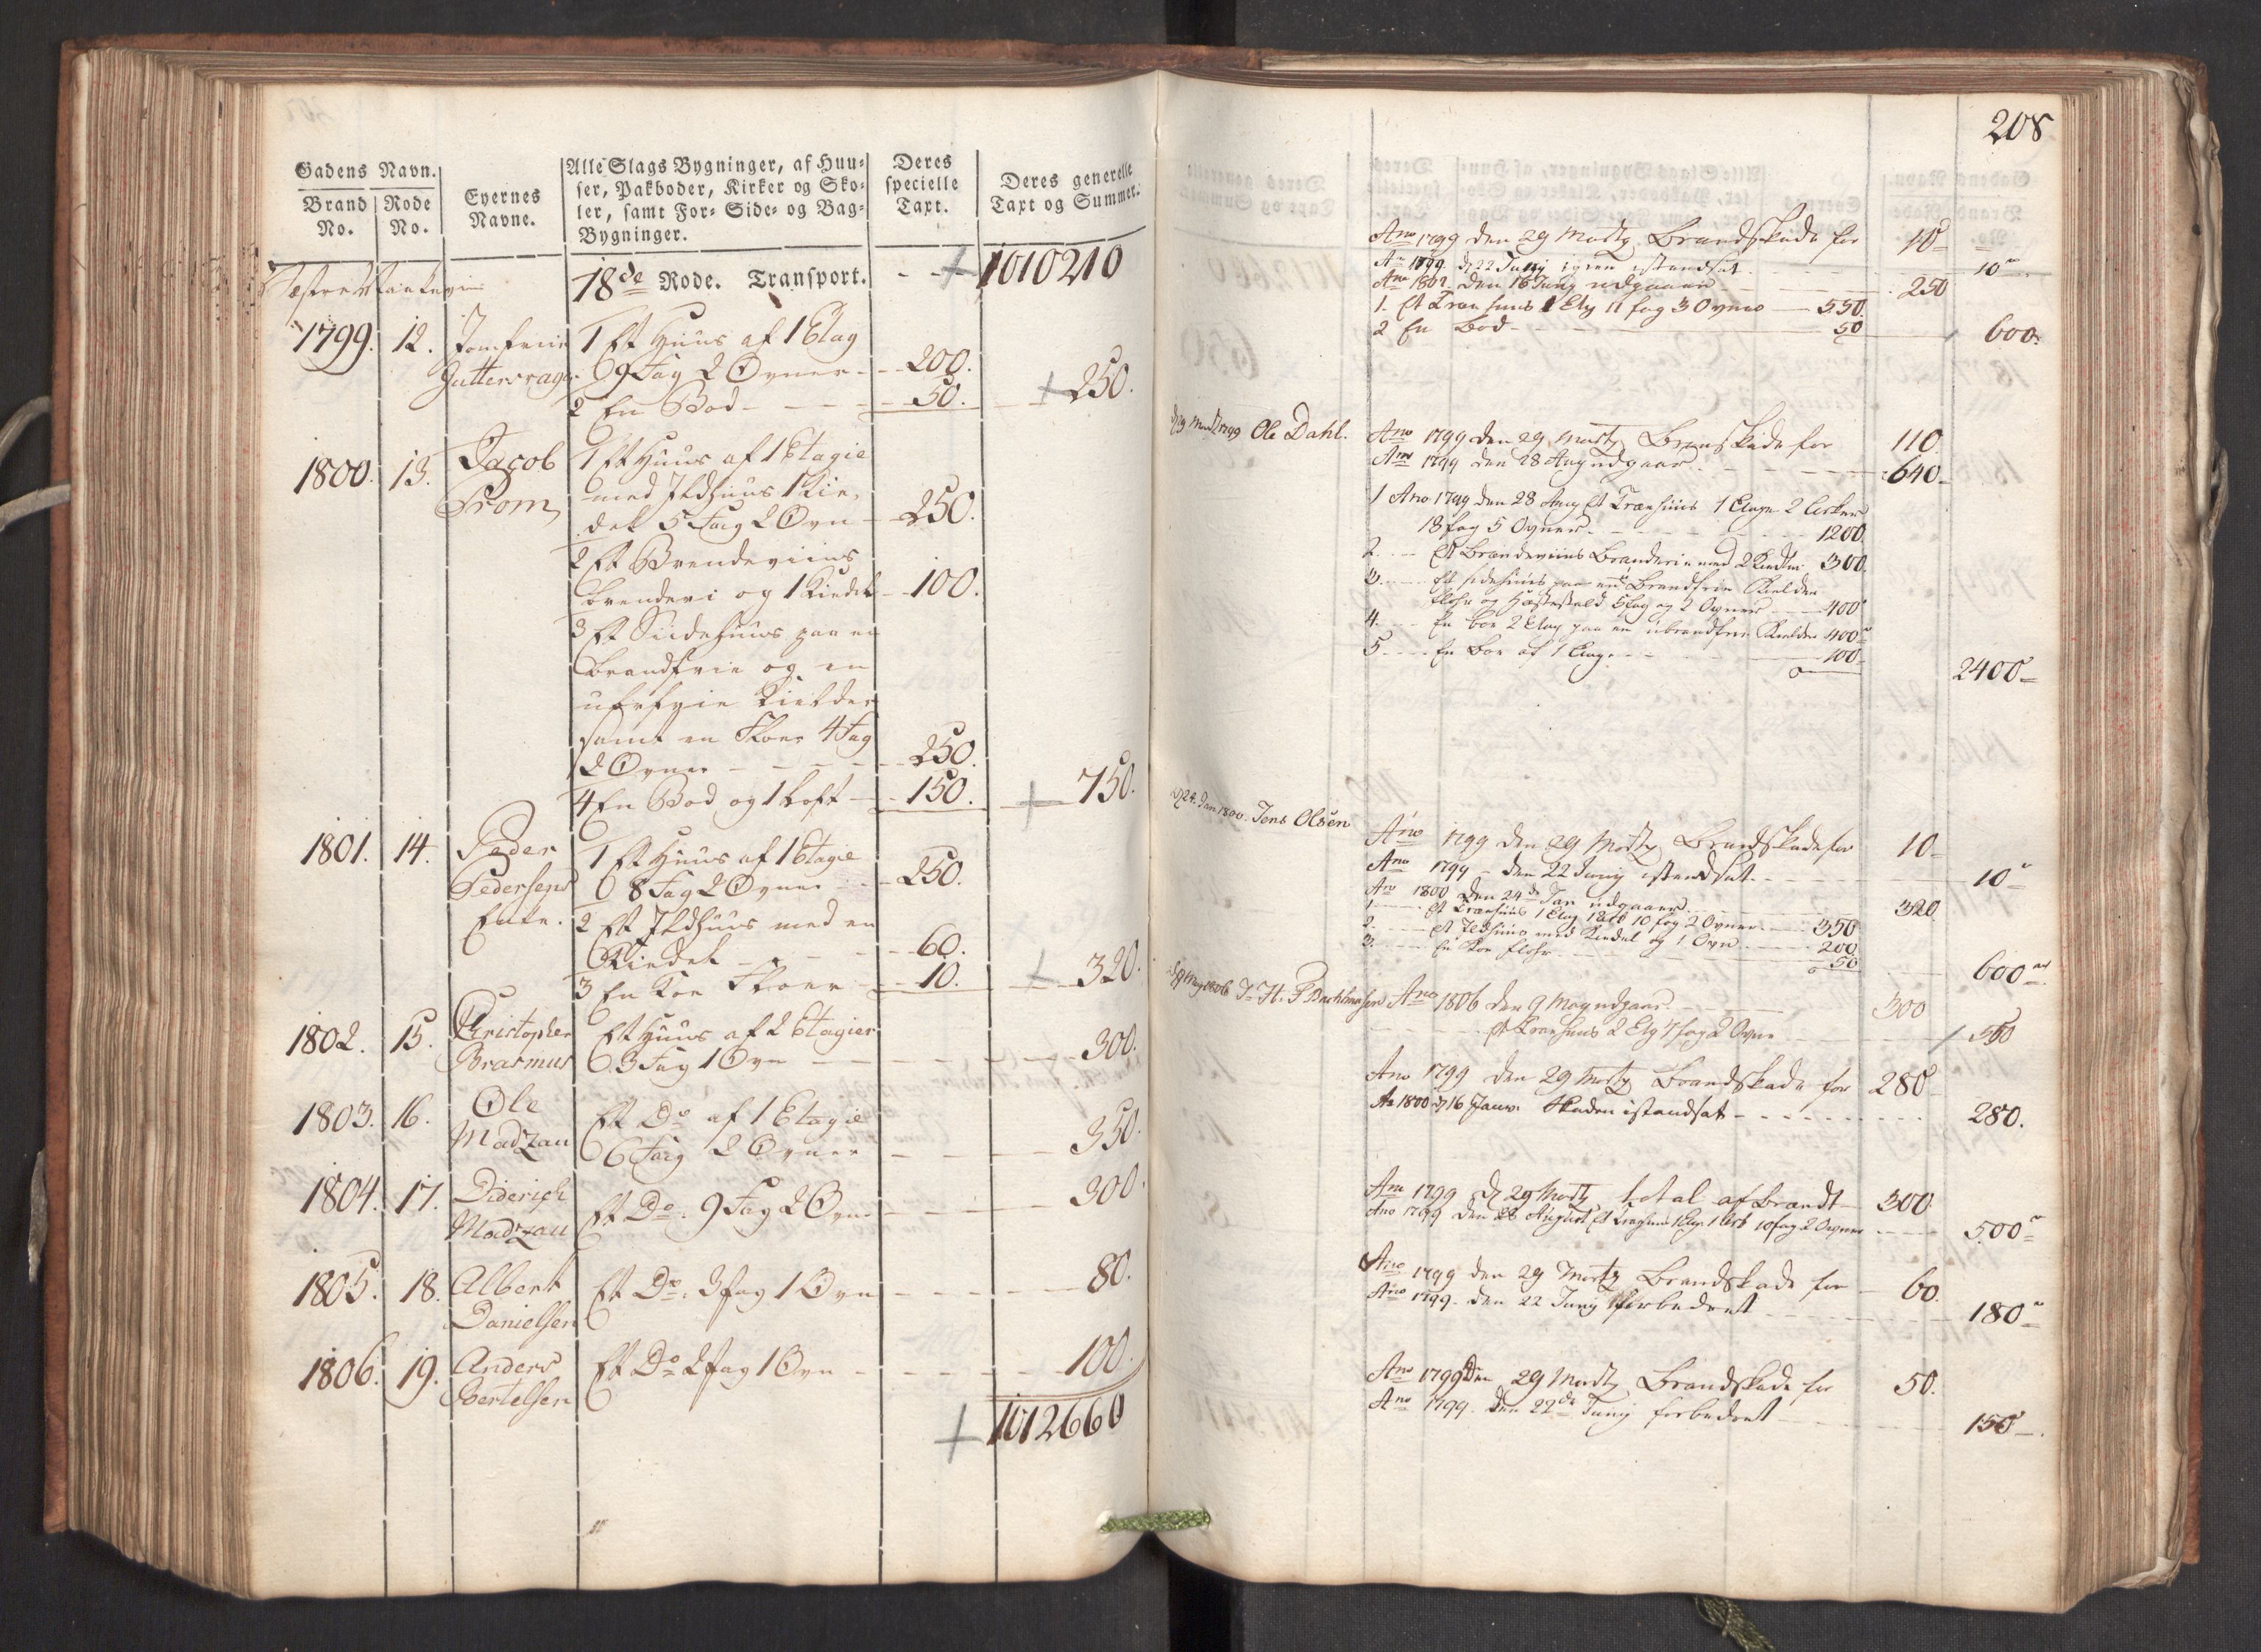 Gadens Navn.
Brand No.
Rode No.
Eyernes Navne.
Alle Slags Bygninger, af Huu-
ser, Pakboder, Kirker og Sko-
ler, samt For- Side- og Bag-
Bygninger.
Deres specielle Taxt.
Deres generelle Taxt og Summer.
18de Rode. Transport. 1010210
1799. 12. Jomfrue 1 Et Huus af 1 Etag
9 Fag 2 Ovner 200.
2 En Bod 50. 250.
1800. 13. Jacob 1 Et Huus af 1 Etagie
Prom med Ildhuus 1 Kie-
del 5 Fag 2 Ovn 250.
2 Et Brendeviins
brenderi og 1 Kiedel 100.
3 Et Siidehuus paa en
brandfrie og en
ubrfrie Kielder
samt en Floer 4 Fag
2 Ovner 250.
4 En Bod og 1 Loft 150. 750.
1801. 14. Peder 1 Et Huus af 1 Etagie
Pedersens 8 Fag 2 Ovner 250.
Enke. 2 Et Ildhuus med en
Kiedel 60.
3 En Koe Floer 10. 320.
1802. 15. Christopher Et Huus af 2 Etagier
Brasmus 3 Fag 1 Ovn 300.
1803. 16. Ole Et Do af 1 Etagie
Madzau 6 Fag 2 Ovner 350.
1804. 17. Diderich Et Do. 9 Fag 2 Ovn 300.
Madzau
1805. 18. Albert Et Do. 3 Fag 1 Ovn 80.
Danielsen
1806. 19. Anders Et Do 2 Fag 1 Ovn 100.
Bertelsen
1012660
208
Ano 1799 den 29 Martz Brandskade for 10
An 1799 d 22 Juny igien istandsat 10
Ano 1802 den 16 Juny udgaaer 250
1. Et Træehuus 1 Etg 11 fag 3 Ovner 550.
2 En Bod 50 600.
1799 Ole Dahl. Ano 1799 den 29 Martz Branskade for 110
Ano 1799 den 28 Aug udgaar 640
1 Ano 1799 den 28 Aug Et Træehuus 1 Etage 2 Arker
18 fag 5 Ovner 1200
2. Et Brændeviins Brænderie med 2 Kiedler 300.
3. Et sidehuus paa en Brandfrie Kielder
flohr og Hæstestald 5 fag og 2 Ovner 400
4. En boe 2 Etag paa en ubrandfrie Kielder 400
5 En Boe af 1 Etage 100
2400
d 24 Jan 1800. Jens Olsen
Ano 1799 den 29 Martz Brandskade for 10
Ano 1799 den 22 Juny istandsat 10
Ano 1800 den 24de Jan udgaaer 320
1 Et Træehuus 1 Etag 1 Ark 10 fag 2 Ovner 350
2. Et Ildhuus med Kiedel og 1 Ovn 200
3. En Koe flohr 50
600
d 9 May 1806 Ano 1806 den 9 May udgaar 300
Et Træehuus 2 Etg 7 fag 2 Ovne 350
Ano 1799 den 29 Martz Brandskade for 280
Ao 1800 d 16 Janv. Skaden istandsat 280.
Ano 1799 d 29 Martz total afBrandt 300
Ano 1799 den 28 August Et Træehuus 1 Etg 1 Ark 10 fag 2 Ovner 500
Ano 1799 den 29 Martz Brandskade for 60.
Ano 1799. den 22 Juny forbedret 180
Ano 1799 den 29 Martz Brandskade for 50.
Ano 1799. den 22de Juny forbedret 150